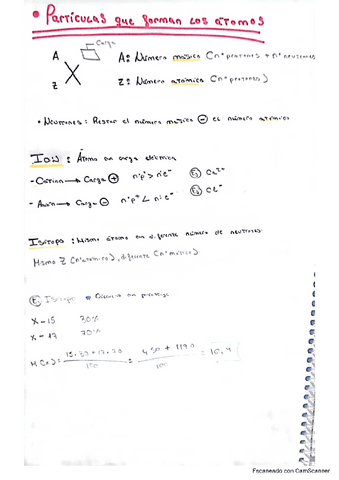 • Partículas que forman los átomos
Carga
A A: Número másico (nº protones + nº neutrones)
X
Z Z: Número atómico (nº protones)
• Neutrones: Restar el número másico ⊖ el número atómico
Ion: Átomo con carga eléctrica
- Catión → Carga ⊕ nºp⁺ > nºe⁻
- Anión → Carga ⊖ nºp⁺ < nºe⁻ Ej Cl⁻
Isótopo: Mismo átomo con diferente número de neutrones
Mismo Z (nº atómico), diferente (nº másico)
Ej Isótopo
X - 15 30%
X - 17 70%
M(x) = 15·30 + 17·70 / 100 = 450 + 1190 / 100 = 16,4
Escaneado con CamScanner